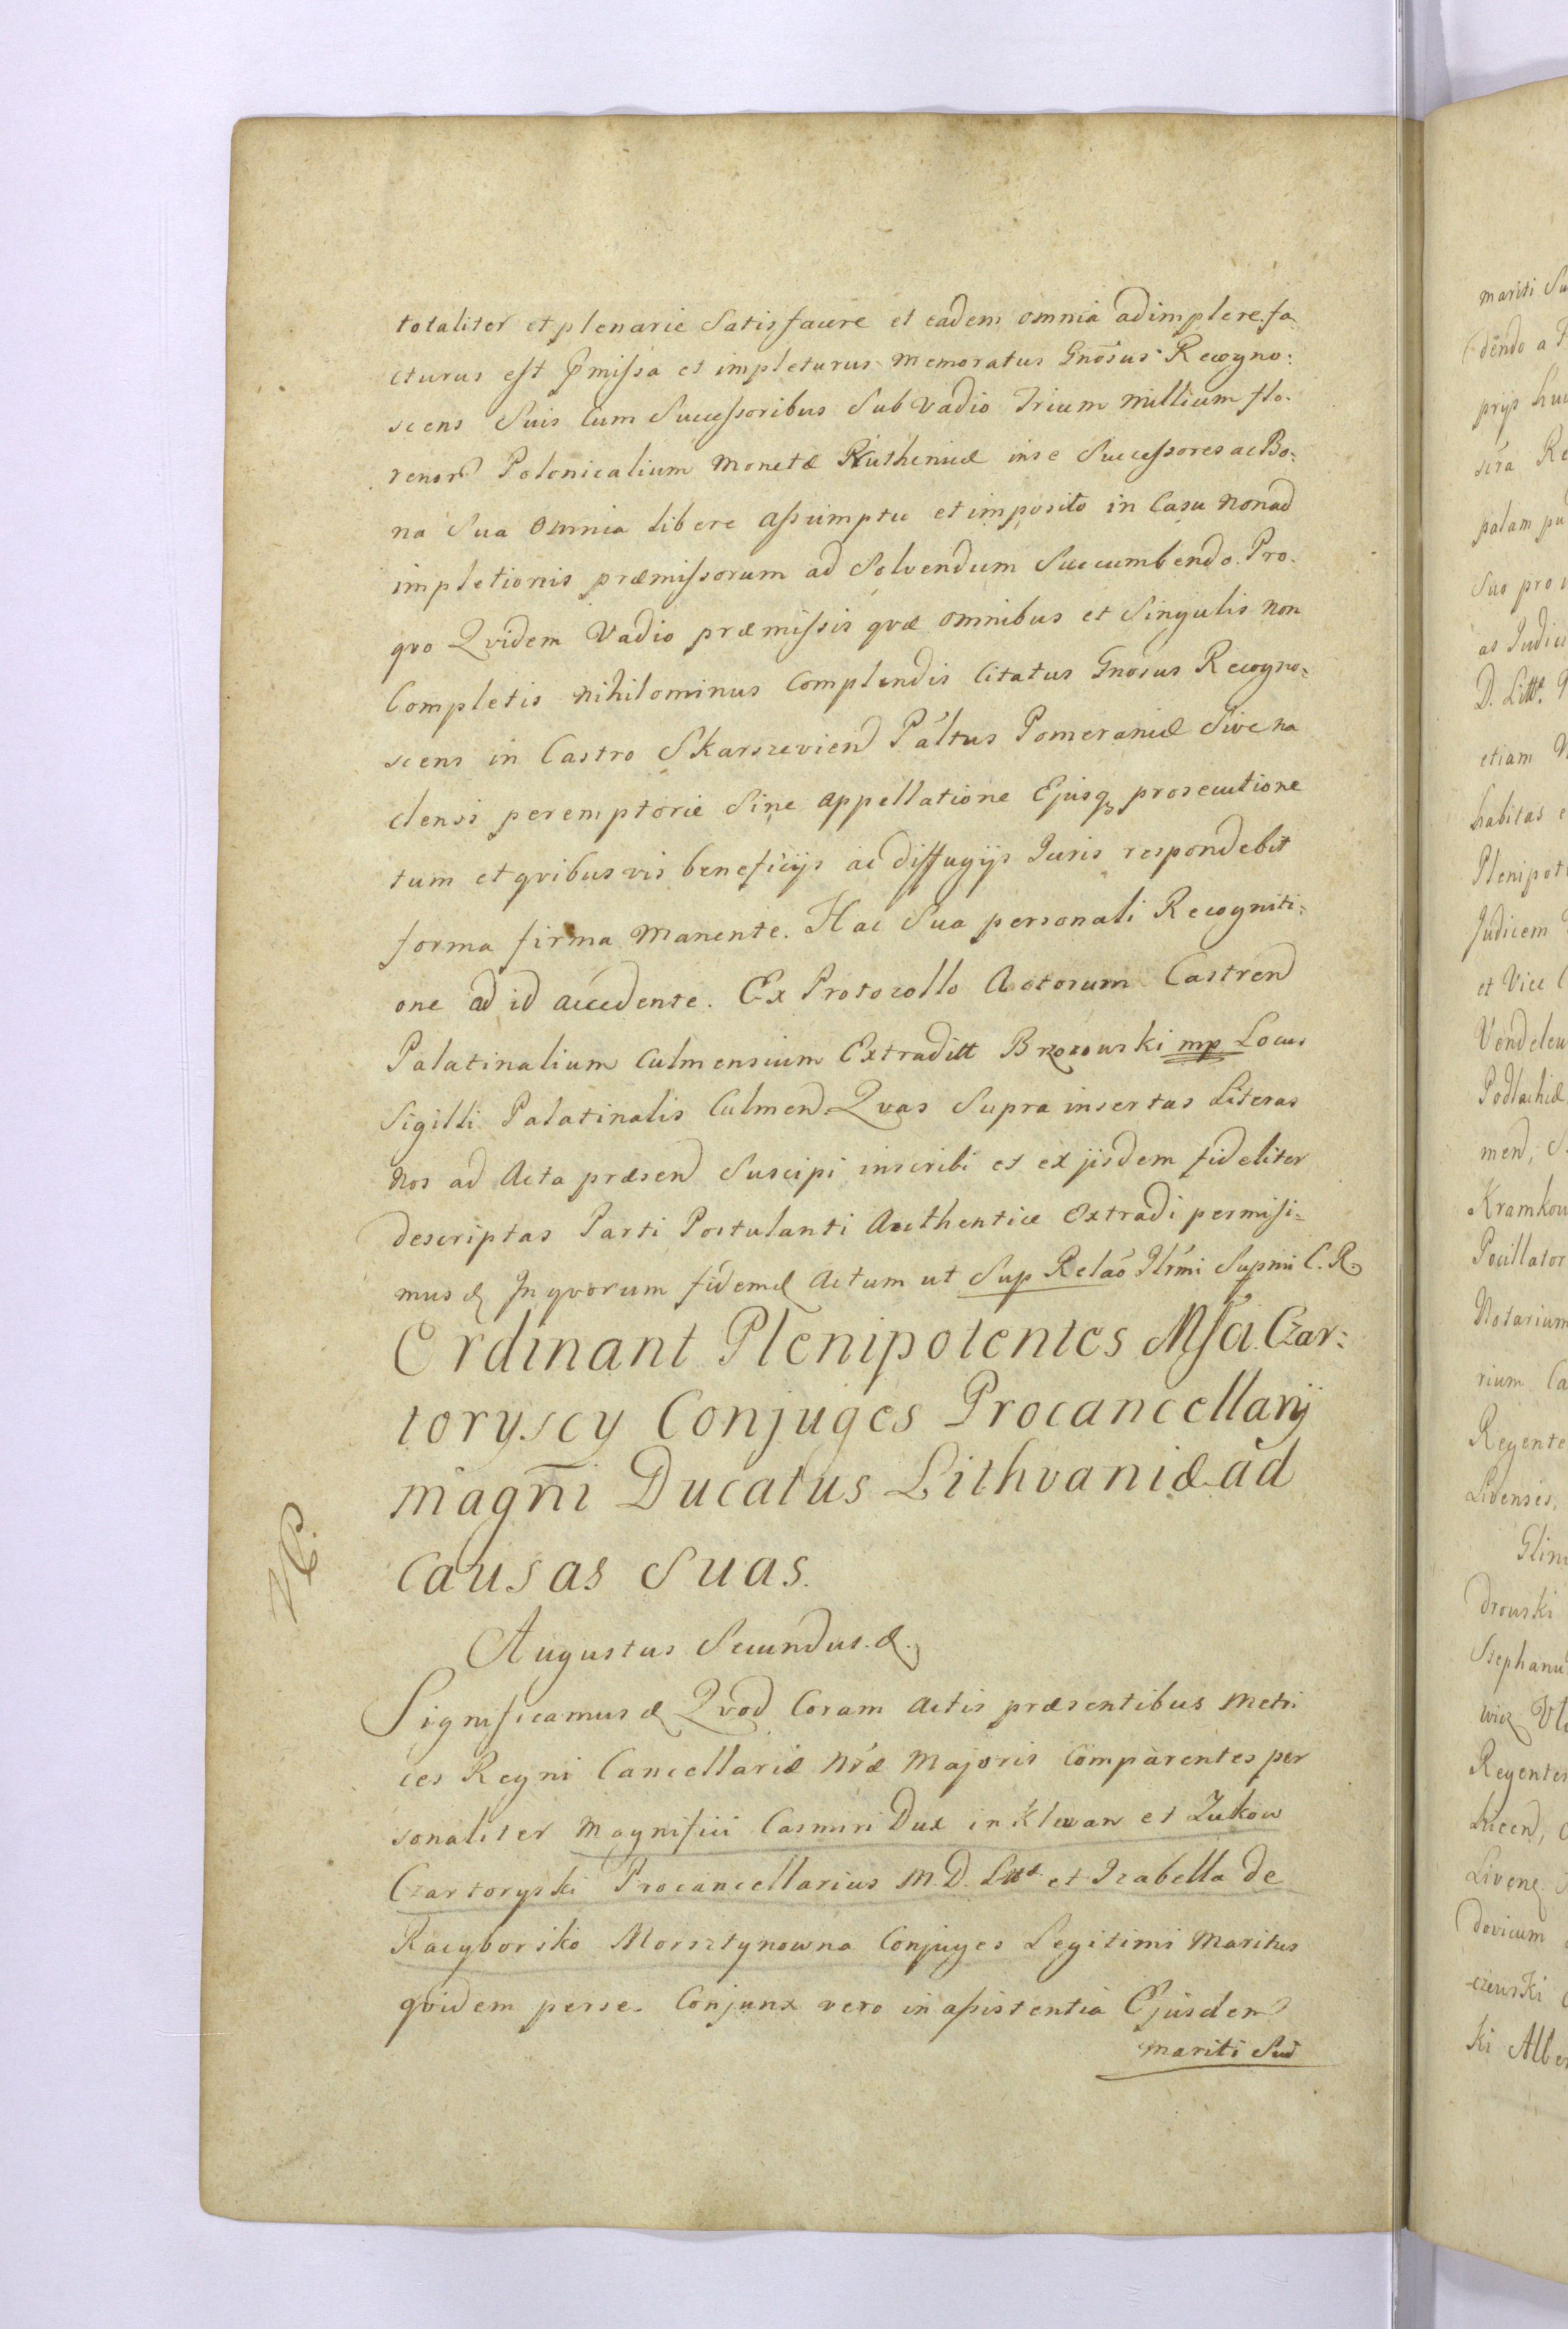 totaliter et plenarie Satisfacere et eadem omnia adimplere. fa
cturus est p̄missa et impleturus memoratus Gnōsus Recogno:
scens Suis Cum Successoribus Sub Vadio Trium Millium flo-
renor Polonicalium Monetæ Prutheniuæ in se Successores ac Bo:
na Sua Omnia libere assumpto et imposito in Casu Nonad
impletionis præmissorum ad Solvendum Succumbendo. Pro.
qvo Qvidem Vadio præmissis qvæ omnibus et Singulis non
Completis nihilominus Complendis Citatus Gnosus Recogno-
scens in Castro Skarszeviend Páltus Pomeraniæ Sive na
densi peremptorie Sine Appellatione Ejusq prosecutione
tum et qvibus vis beneficijs ac diffugijs Iuris respondebit
forma firma Manente. Hac Sua personali Recogniti:
one ad id accedente. Ex Protocollo Actorum Castrend
Palatinalium Culmensium Extraditt Brzozowski mp Locus
Sigilli Palatinalis Culmend. Qvas Supra insertas Literas
Nos ad Acta præsend Suscipi inscribi et ex jisdem fideliter
descriptas Parti Postulanti Authentice Extradi permisi-
mus & In qvorum fidem & Actum ut Sup Relaō Illmi Supmi C. R.
Ordinant Plenipotentes Msci Czar:
toryscy Conjuges Procancellarij
magni Ducatus Lithvaniæ ad
Causas Suas.
Augustus Secundus. &.
Significamus & Qvod Coram Actis præsentibus Metri
ces Regni Cancellariæ Nræ Majoris Comparentes per
sonaliter Magnifici Casmiri Dux in Klewan et Zukow
Czartoryski Procancellarius M. D. Litt et Izabella de
Raciborsko Morsztynowna Conjuges Legitimi Maritus
qvidem per se. Conjunx vero in assistentia Ejusdem
mariti Sui
mariti Su
dēndo a
prijs
scra Re
palam pu
Suo pro
as Judic
D. Litt.
etiam
habitas e
Plenipot
Judicem
et Vice C
Vendelou
Podlachiæ
mend, S
Kramkow
Pocillator
Notarium
rium Ca
Regente
Livensis,
Glin
drowski
Stephanu
wicz Vl
Regentes
Livend
dovicum
czewski
ki Alber